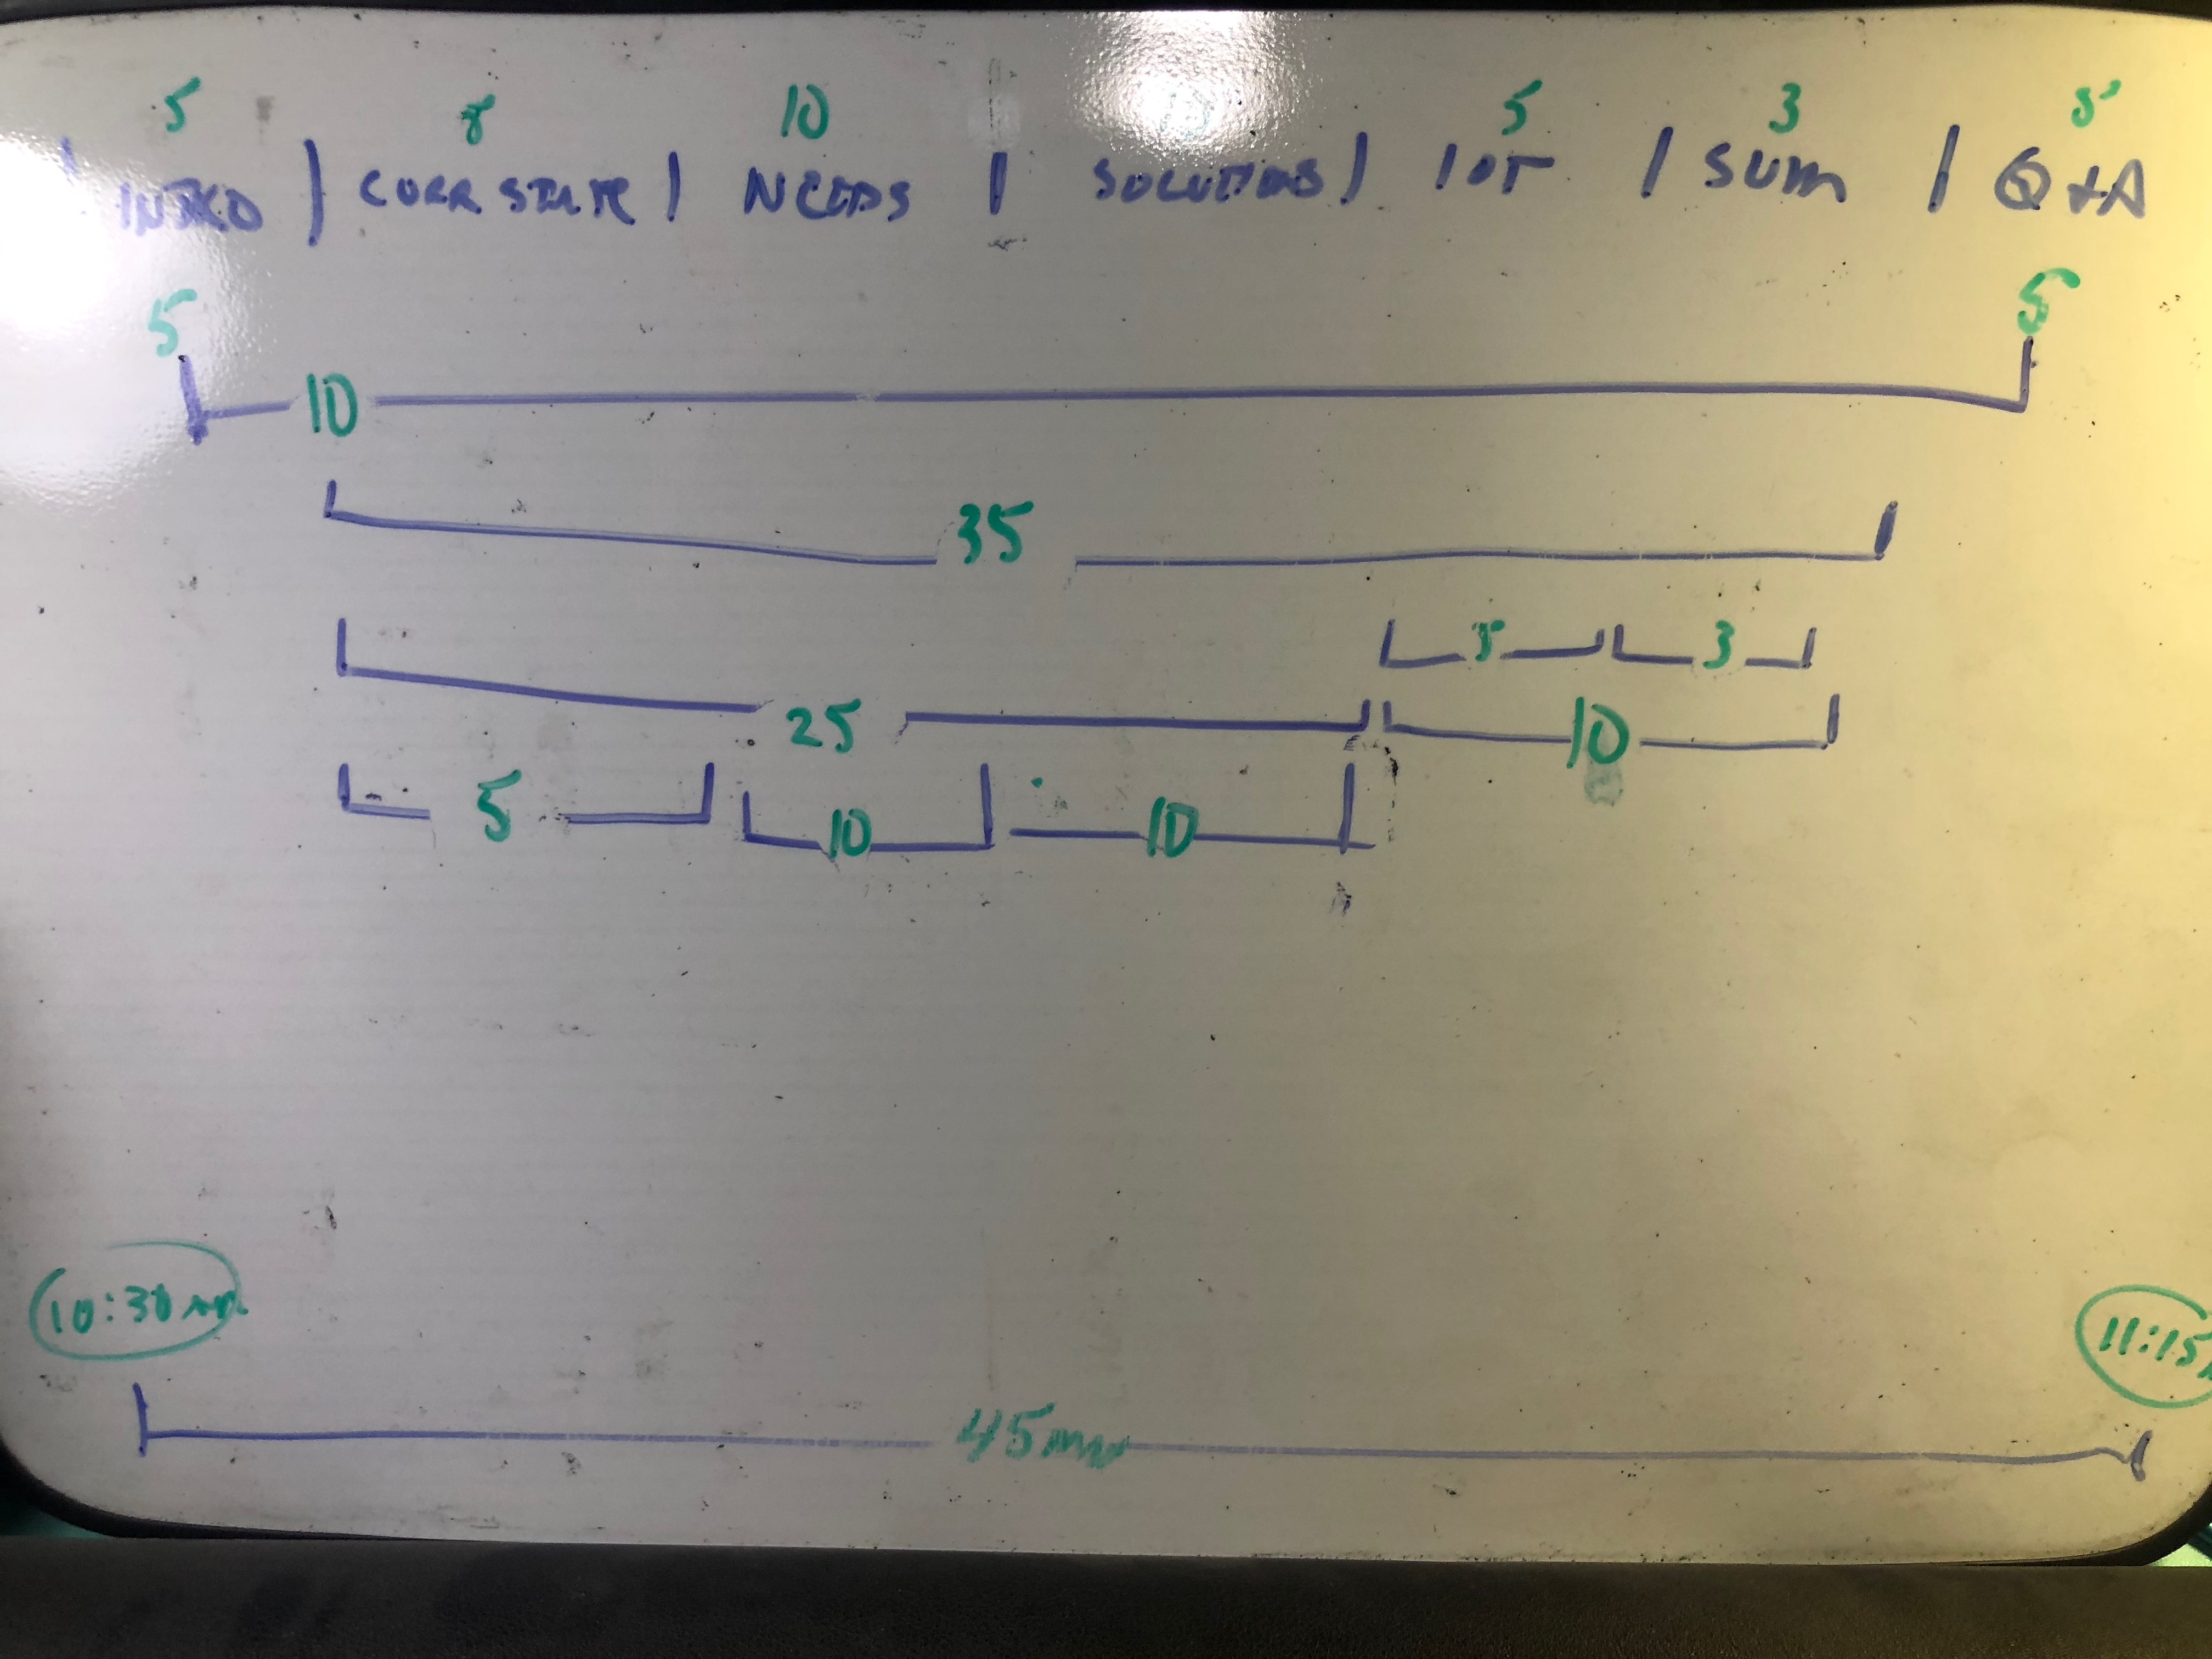 5 8 10 5 3 5
INTRO | CURR STATE | NEEDS | SOLUTIONS | IOT | SUM | Q+A
5 5
10
35
5 3
25 10
5 10 10
10:30 AM 11:15
45 min